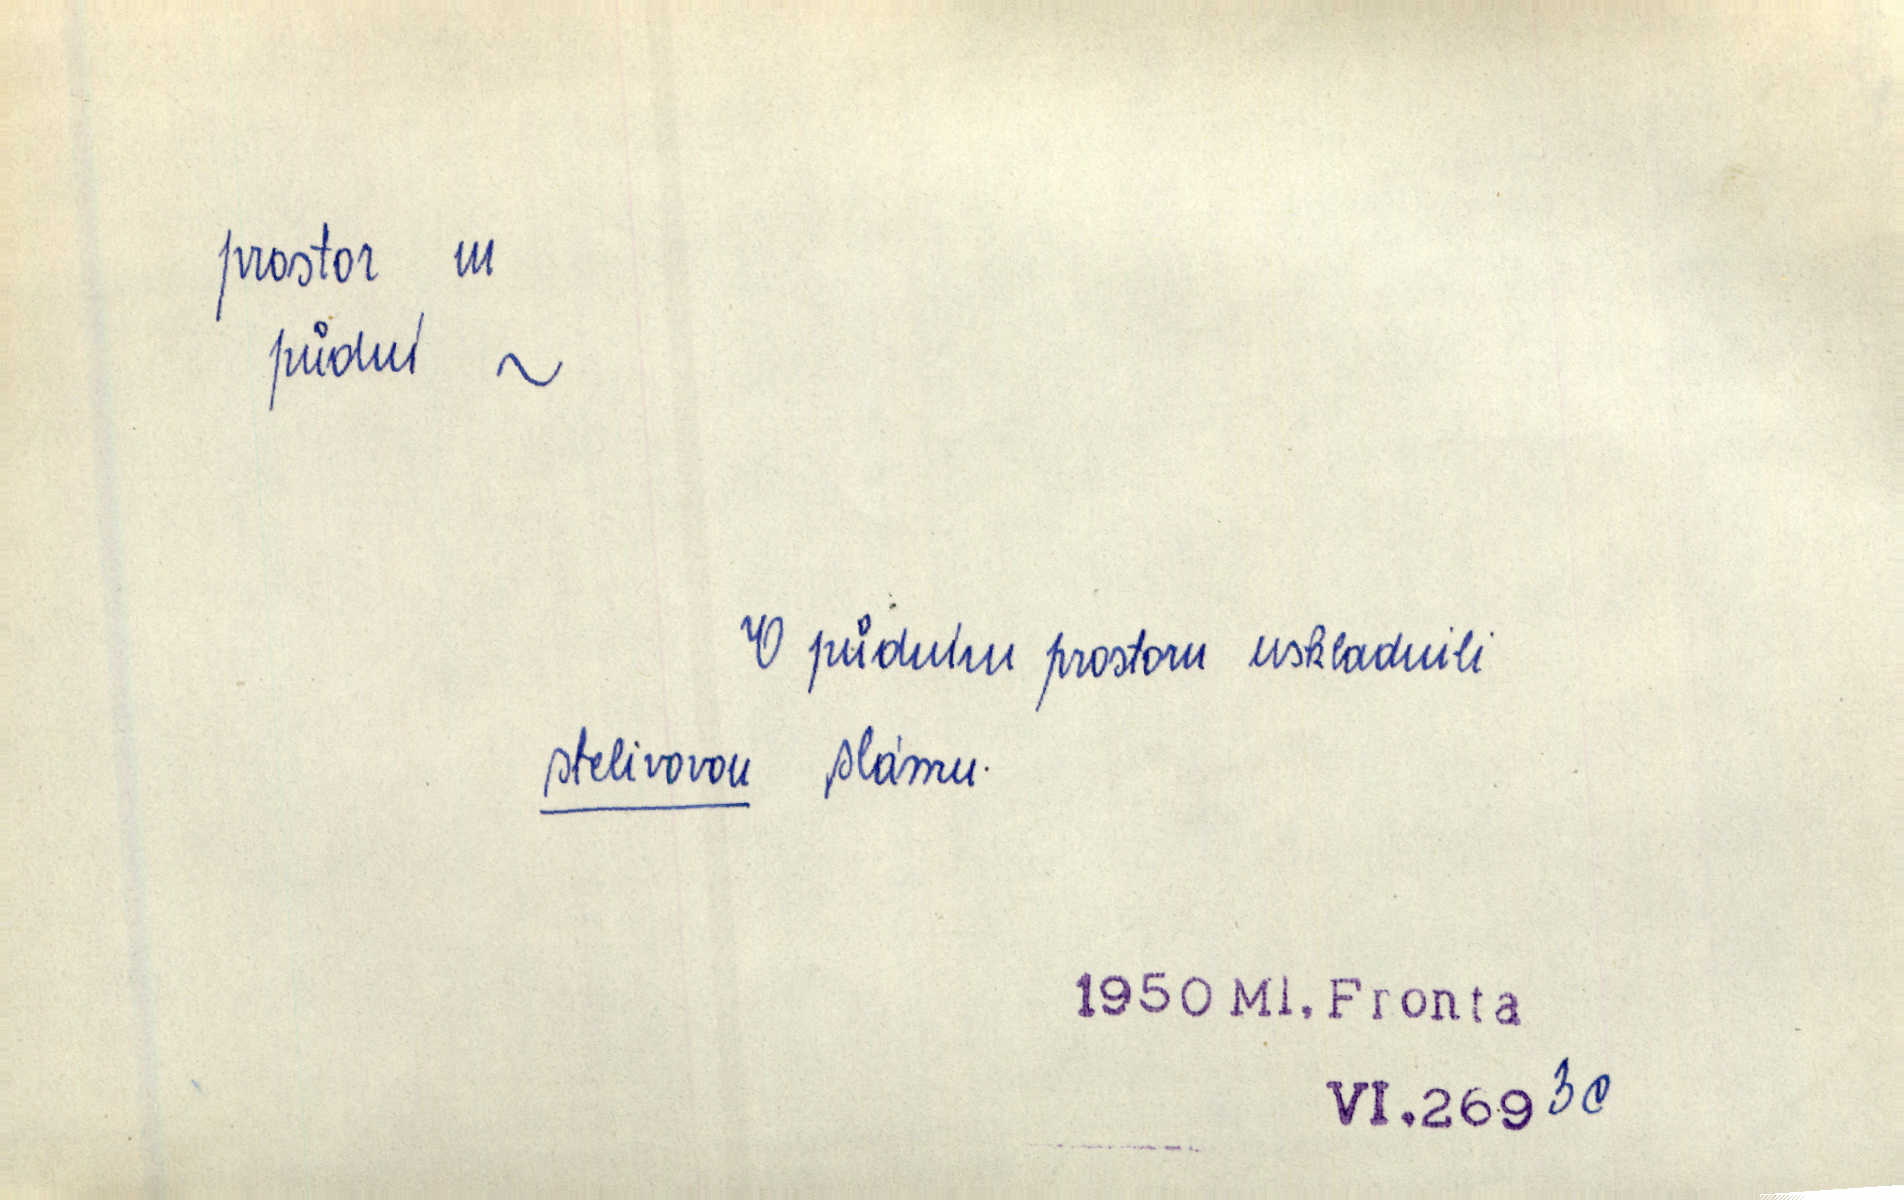 prostor m
půdní ~
V půdním prostoru uskladnili
stelivovou slámu.
1950 Ml. Fronta
VI.269 3c